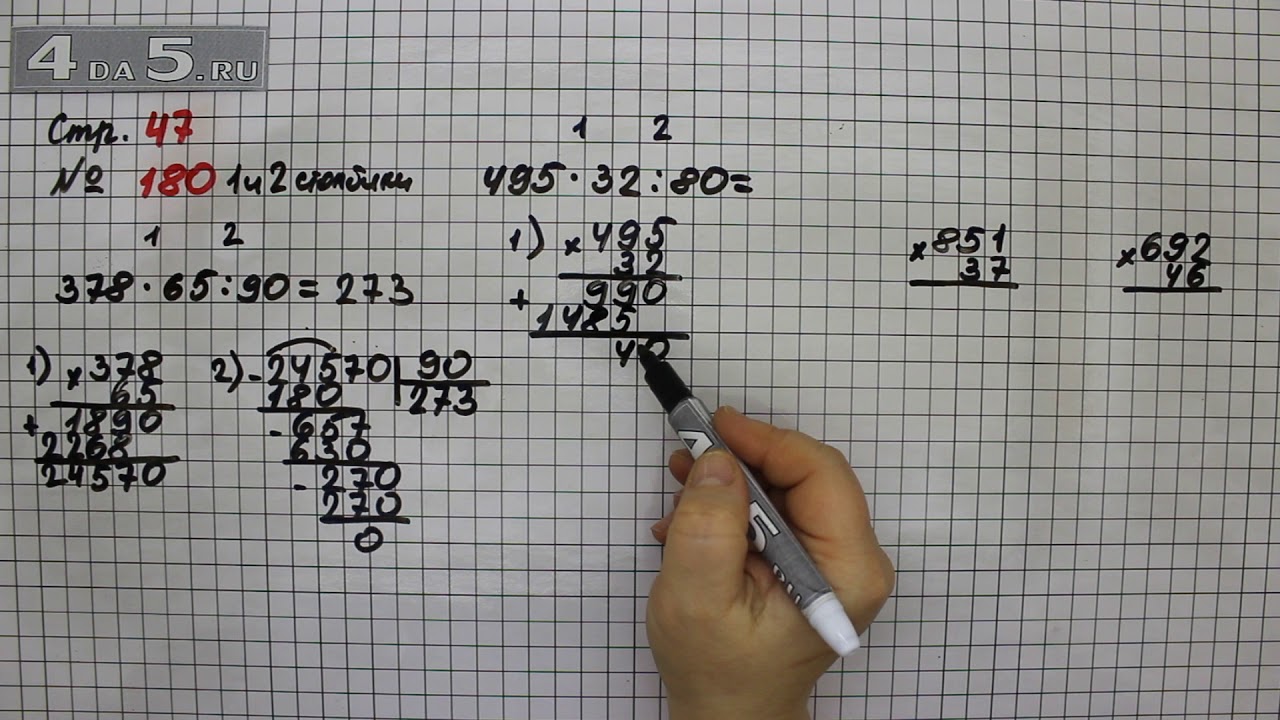 4DA5.RU
Стр. 47
№ 180 1 и 2 столбики
1 2
378·65:90=273
1) ×378
65
+1890
2268
24570
2) -24570 90
180 273
-657
630
-270
270
0
1 2
495·32:80=
1) ×495
32
+990
1485
40
×851
37
×692
46